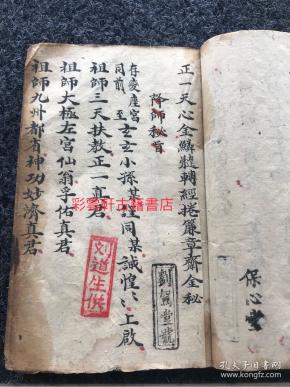 正一天心金觧𮣳轉經捲簾章齋全秘
降師秘旨
存变產宮玄玄小孫某謹同某誠惶〻上啟
同前
祖師三天扶教正一真君
祖師大極左宮仙翁孚佑真君
祖師九州都省神功妙濟真君
刘道生供
保心堂
彩云轩古籍書店
孔夫子旧书网